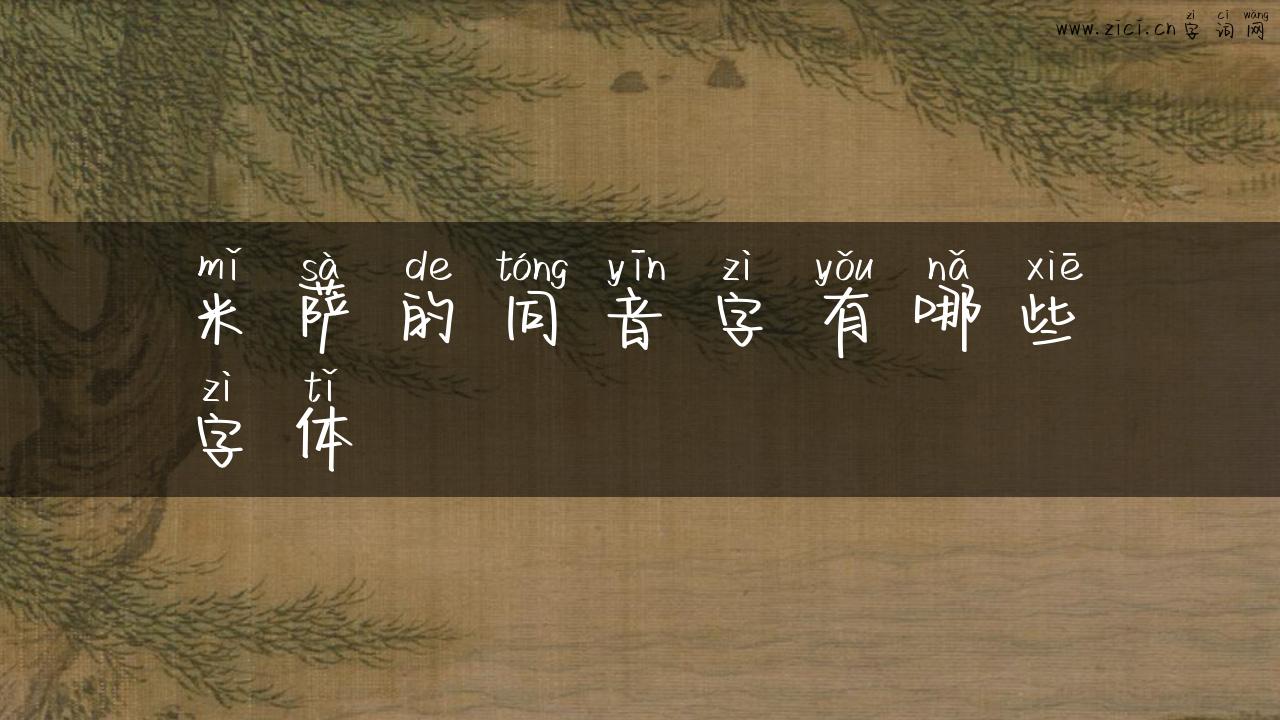 zì cí wǎng
www.zici.cn字词网
mǐ sà de tóng yīn zì yǒu nǎ xiē
米萨的同音字有哪些
zì tǐ
字体